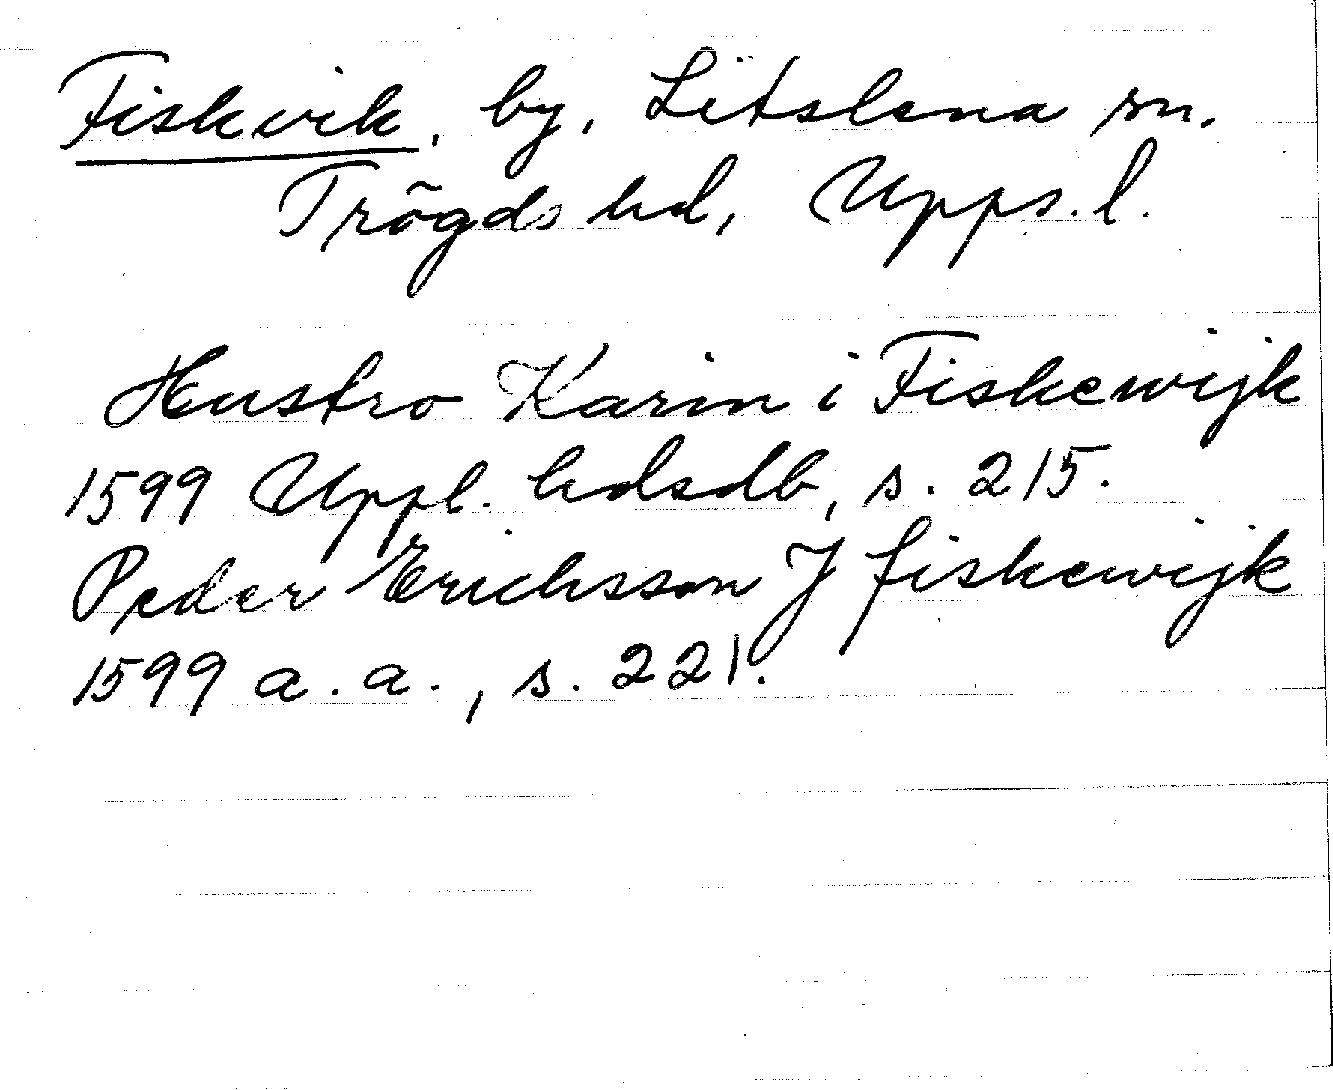 Fiskvik, by, Litslena sn.
Trögds hd, Upps. l.
Hustro Karin i Fiskewijk
1599 Uppl. hdsdb, s. 215.
Peder Erichsson J fiskewijk
1599 a. a., s. 221.